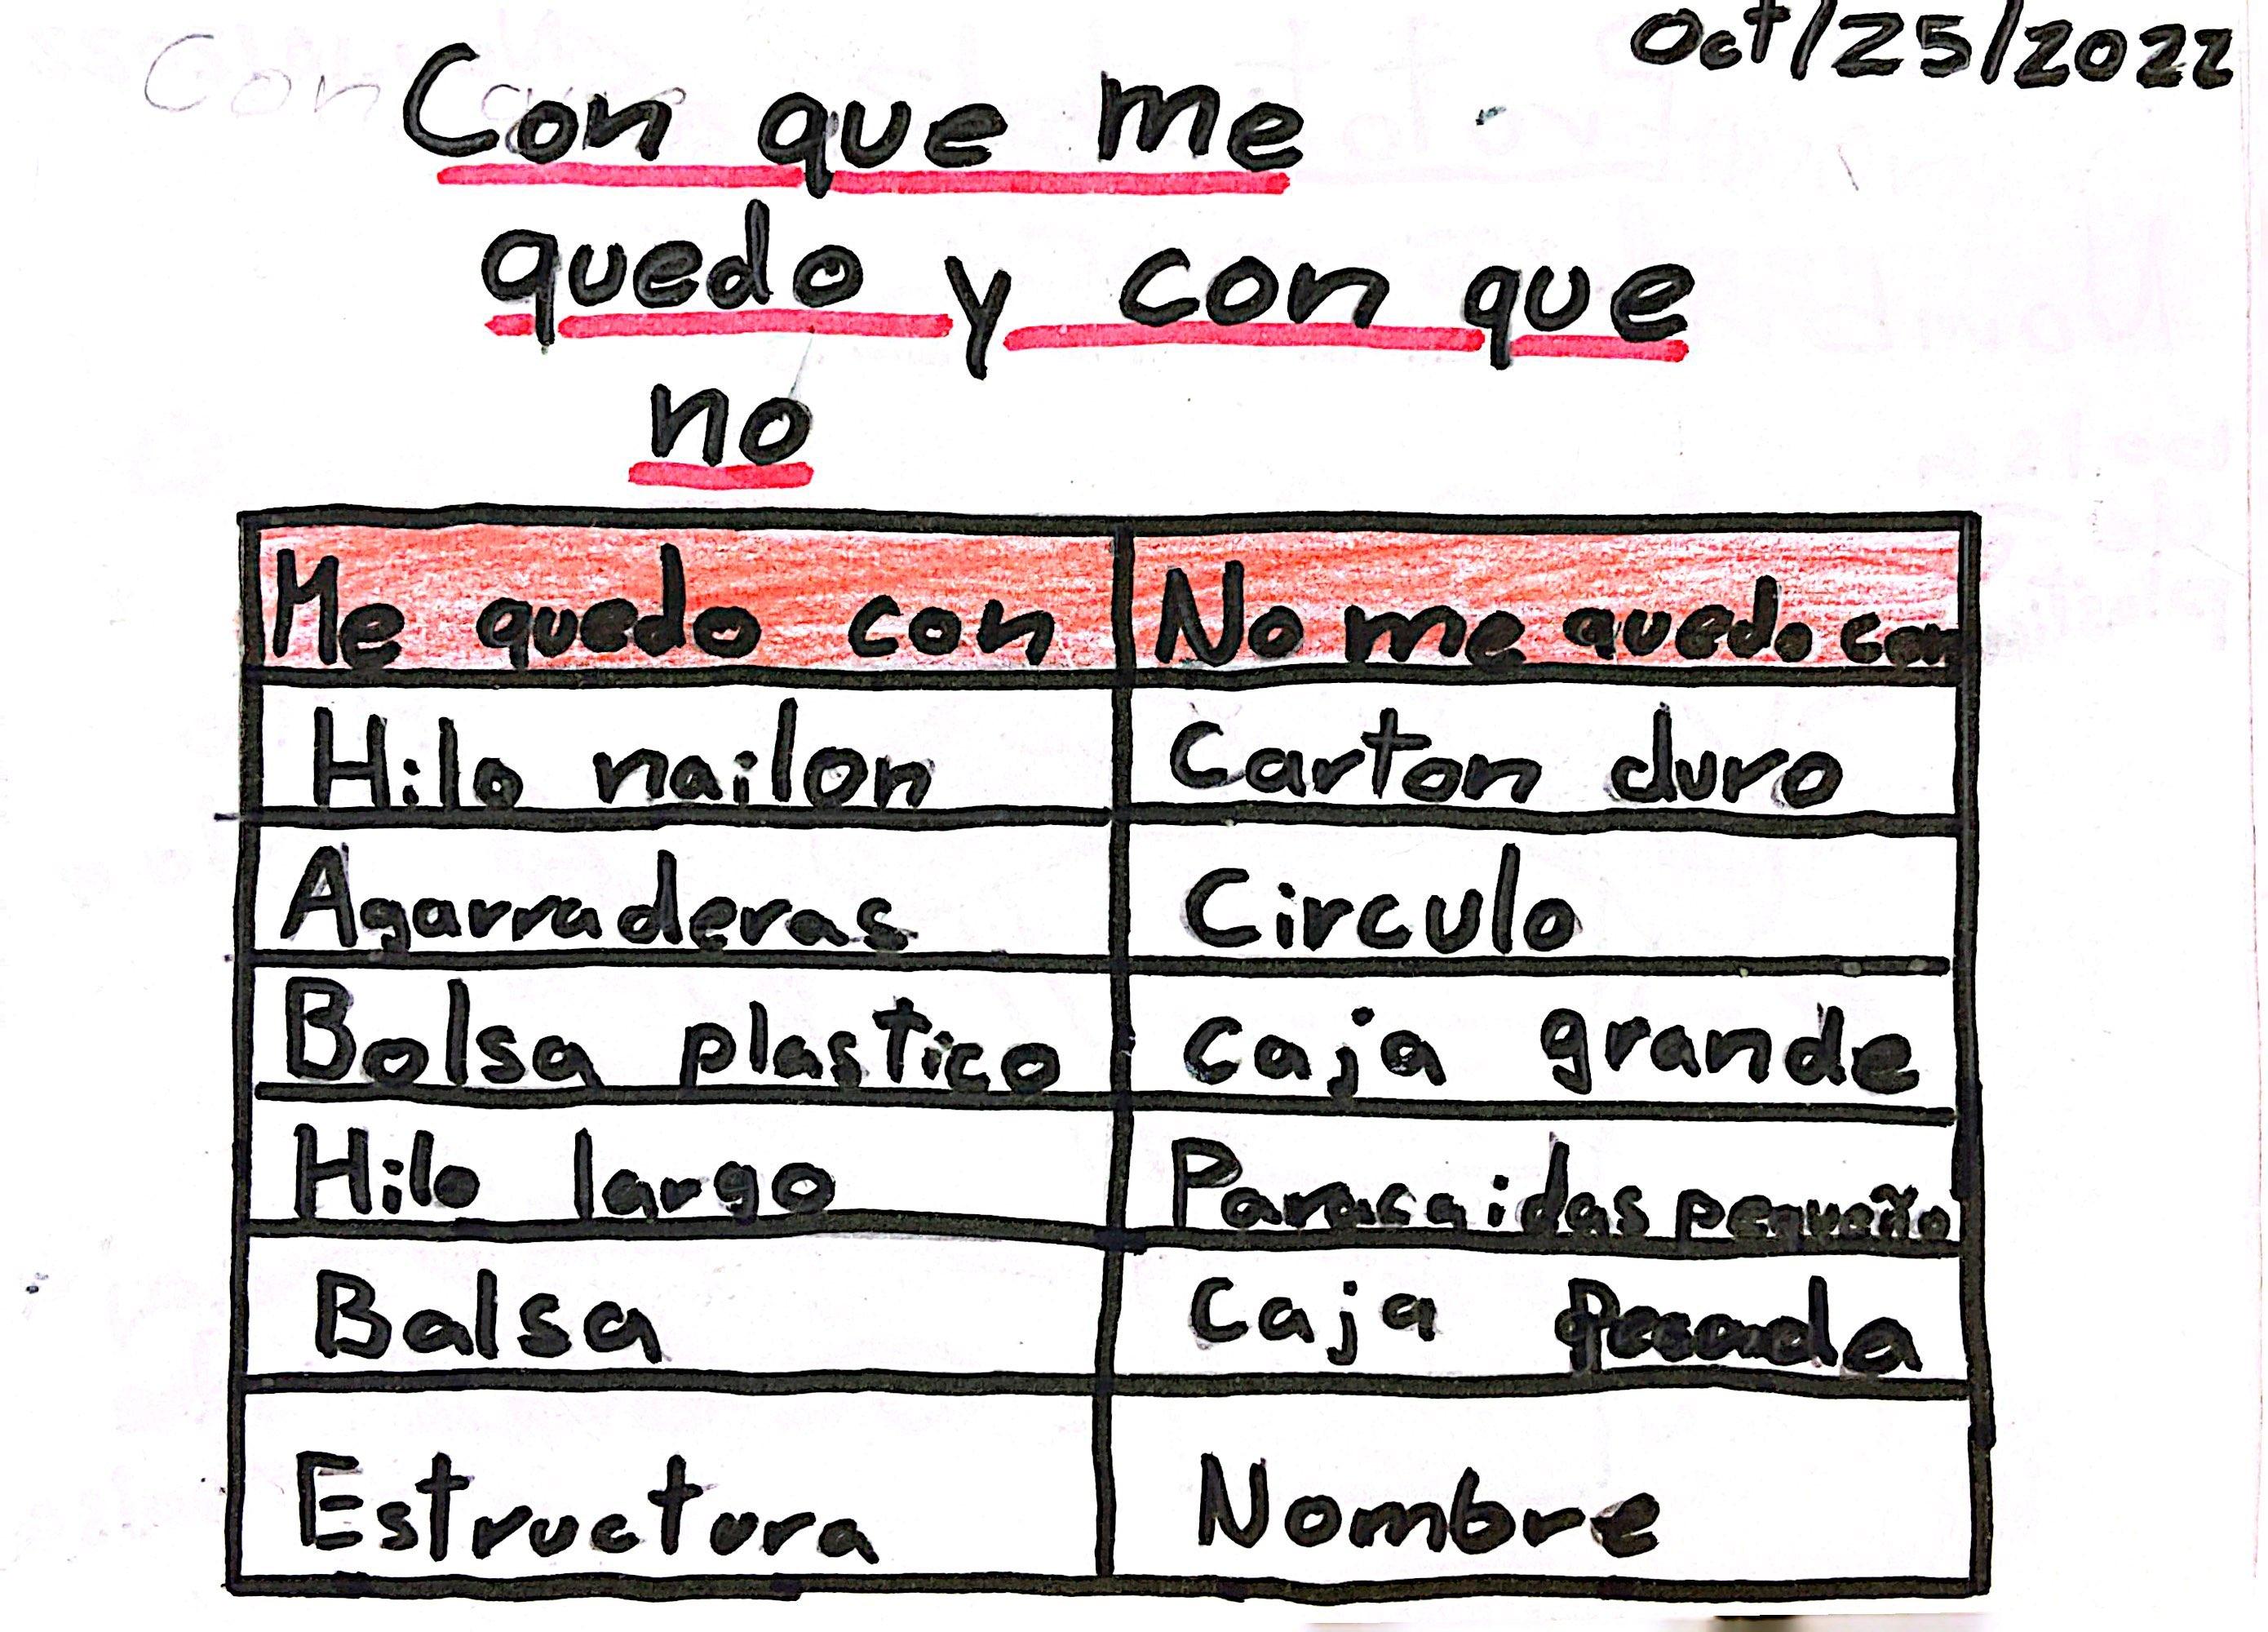 Oct/25/2022
Con que me
quedo y con que
no
Me quedo con No me quedo con
Hilo nailon Carton duro
Agarraderas Circulo
Bolsa plastico caja grande
Hilo largo Paracaidas pequeño
Balsa Caja Pesada
Estructura Nombre